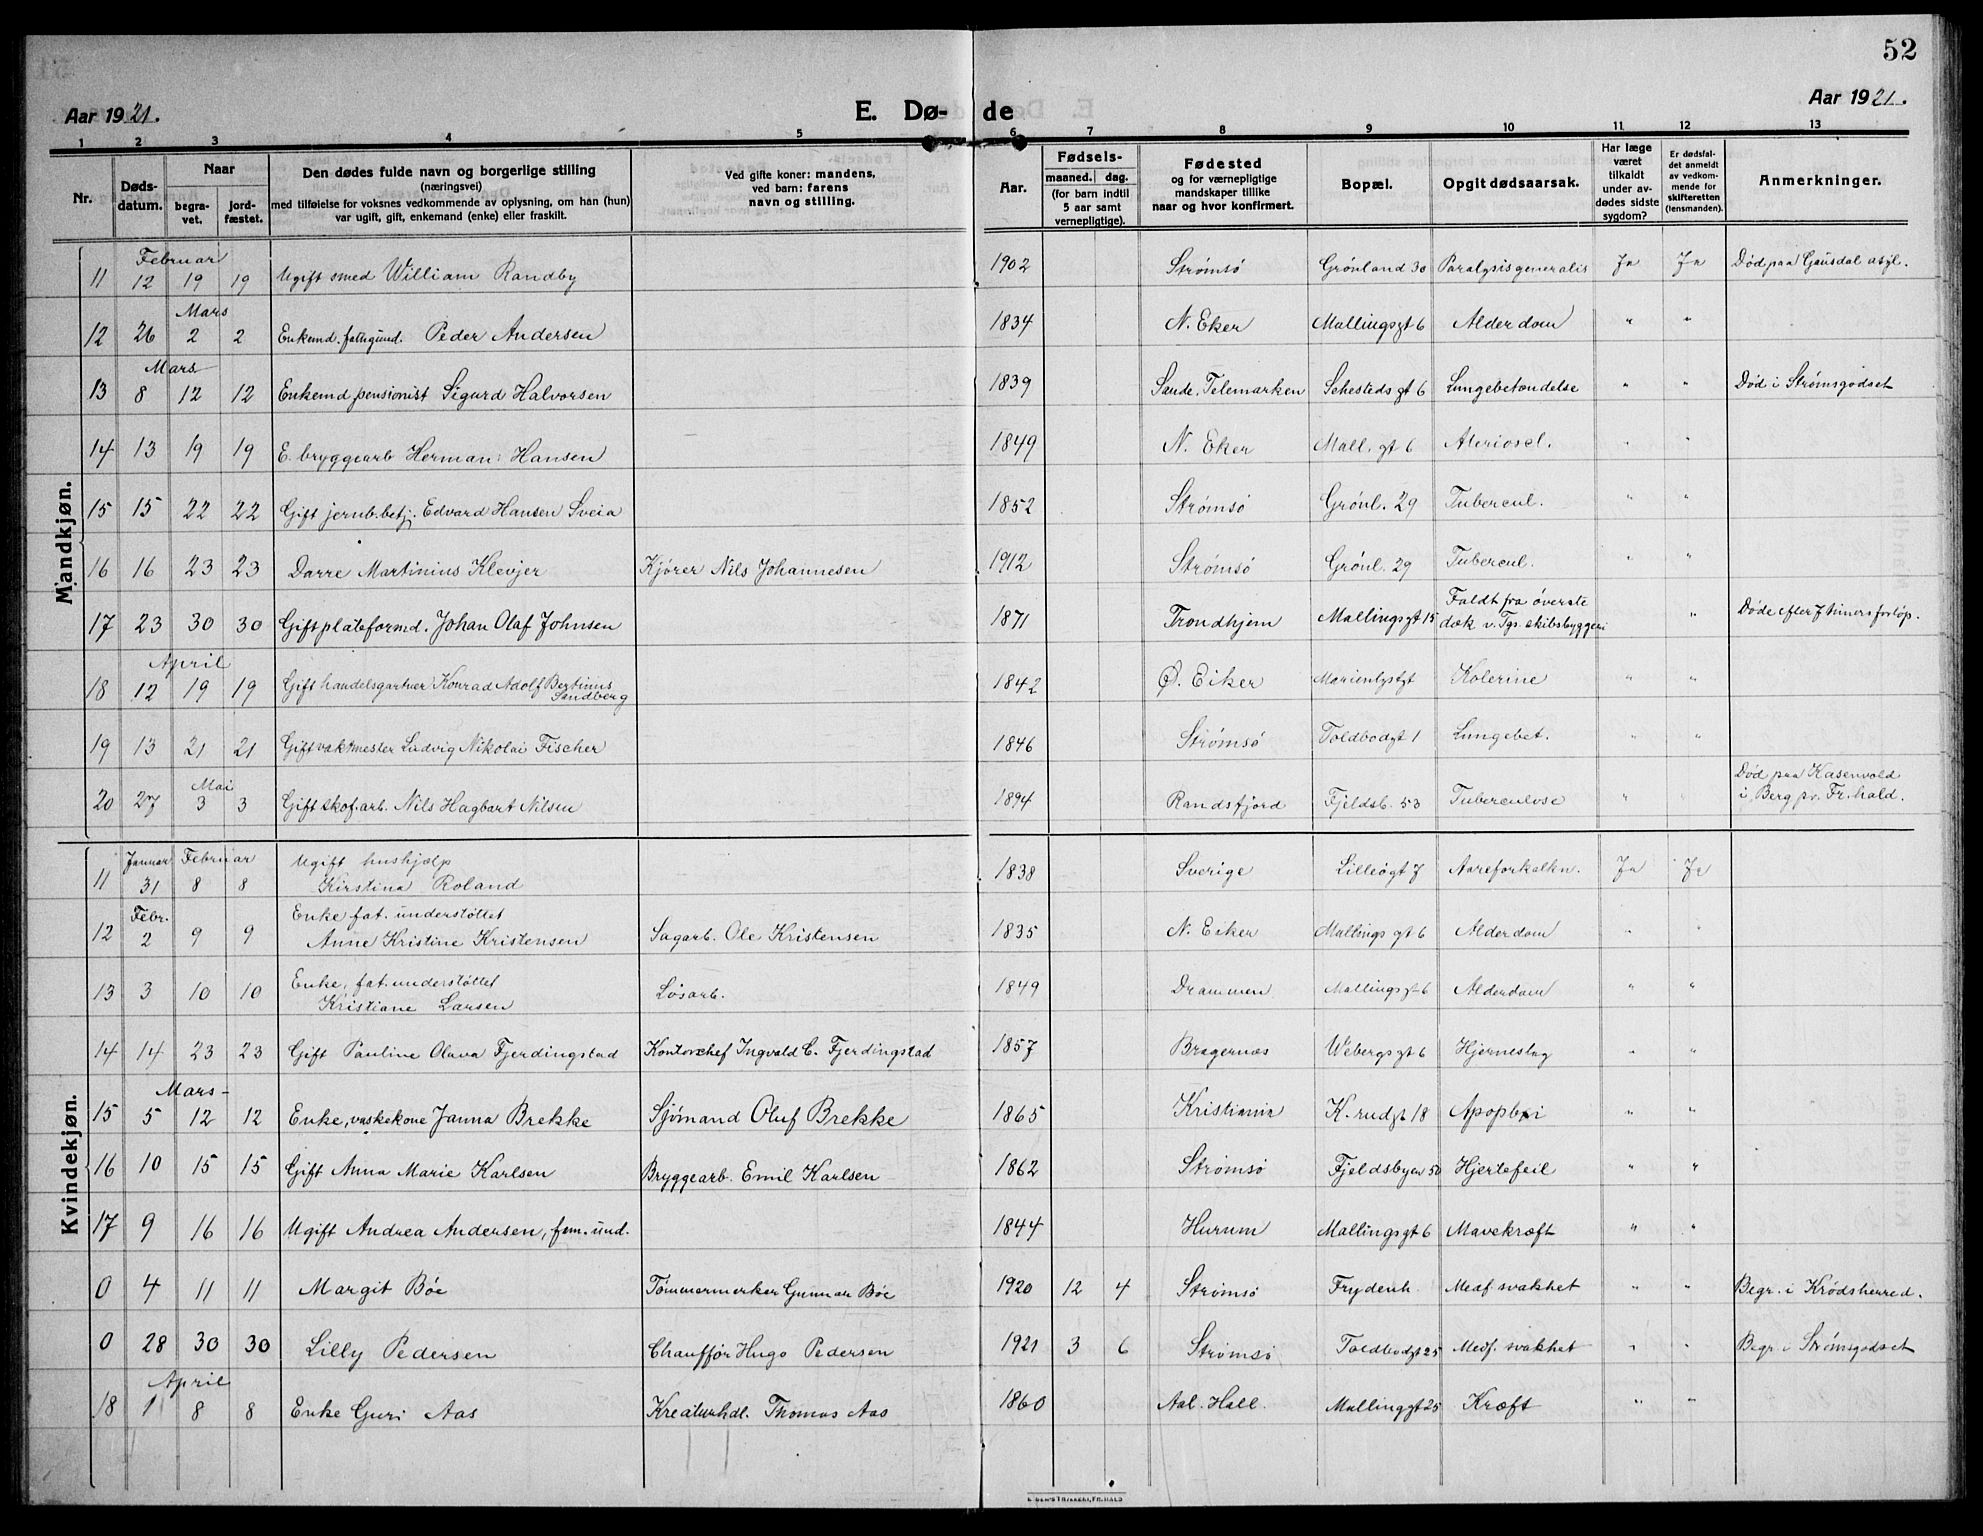 52
Aar 1921.
E. Dø-
de
Aar 1921.
1 2 3 4 5 6 7 8 9 10 11 12 13
Nr.
Dødsdatum.
Naar
begravet.
jordfæstet.
Den dødes fulde navn og borgerlige stilling
(næringsvei)
med tilføielse for voksnes vedkommende av oplysning, om han (hun)
var ugift, gift, enkemand (enke) eller fraskilt.
Ved gifte koner: mandens,
ved barn: farens
navn og stilling.
Aar.
Fødsels-
maaned. dag.
(for barn indtil
5 aar samt
vernepligtige).
Fødested
og for værnepligtige
mandskaper tillike
naar og hvor konfirmert.
Bopæl.
Opgit dødsaarsak.
Har læge
været
tilkaldt
under avdødes sidste
sygdom?
Er dødsfaldet anmeldt
av vedkommende for
skifteretten
(lensmanden).
Anmerkninger.
Mandkjøn.
Februar
11 12 19 19 Ugift smed William Randby 1902 Strømsø Grønland 30 Paralysis generalis Ja Ja Død paa Gausdal asyl.
Mars
12 26 2 2 Enkemd. fattigund. Peder Andersen 1834 N. Eker Mallingsgt 6 Alderdom " "
Mars
13 8 12 12 Enkemd pensionist Sigurd Halvorsen 1839 Saude, Telemarken Sehestedsgt 6 Lungebetændelse " " Død i Strømsgodset
14 13 19 19 E. bryggearb Herman Hansen 1849 N. Eker Mall. gt 6 Aterioscl. " "
15 15 22 22 Gift jernb.betj. Edvard Hansen Sveia 1852 Strømsø Grønl. 29 Tubercul. " "
16 16 23 23 Darre Martinius Klevjer Kjører Nils Johannesen 1912 Strømsø Grønl. 29 Tubercul. " "
17 23 30 30 Gift plateformd. Johan Olaf Johnsen 1871 Trondhjem Mallingsgt 15 Faldt fra øverste
dæk v. Tgs. skibsbyggeri " Døde efter 7 timers forløp.
April
18 12 19 19 Gift handelsgartner Konrad Adolf Bertinus
Sandberg 1842 Ø. Eiker Marienlystgt Kolerine " "
19 13 21 21 Gift vaktmester Ludvig Nikolai Fischer 1846 Strømsø Toldbodgt 1 Lungebet. " "
Mai
20 27 3 3 Gift skof.arb. Nils Hagbart Nilsen 1894 Randsfjord Fjeldsb. 53 Tuberculose " " Død paa Kasenvold
i Berg pr. Fr.hald.
Kvindekjøn.
Januar Februar
11 31 8 8 Ugift hushjælp
Kirstina Roland 1838 Sverige Lilleøgt 7 Aareforkalkn. Ja Ja
Febr.
12 2 9 9 Enke fat. understøttet
Anne Kristine Kristensen Sagarb. Ole Kristensen 1835 N. Eiker Mallings gt 6 Alderdom " "
13 3 10 10 Enke, fat. understøttet
Kristiane Larsen Løsarb. 1849 Drammen Mallingsgt 6 Alderdom " "
14 14 23 23 Gift Pauline Olava Fjerdingstad Kontorchef Ingvald C. Fjerdingstad 1857 Bragernæs Webergsgt 6 Hjerneslag " "
Mars-
15 5 12 12 Enke, vaskekone Janna Brekke Sjømand Oluf Brekke 1865 Kristiania K.rudgt 18 Apoplexi " "
16 10 15 15 Gift Anna Marie Karlsen Bryggearb. Emil Karlsen 1862 Strømsø Fjeldsbyen 50 Hjertefeil " "
17 9 16 16 Ugift Andrea Andersen, fem. und. 1844 Hurum Mallingsgt 6 Mavekræft " "
0 4 11 11 Margit Bøe Tømmermerker Gunnar Bøe 1920 12 4 Strømsø Frydenh. Medf. svakhet " " Begr. i Krødsherred.
0 28 30 30 Lilly Pedersen Chauffør Hugo Pedersen 1921 3 6 Strømsø Toldbodgt 25 Medf. svakhet " " Begr. i Strømsgodset
April
18 1 8 8 Enke Guri Aas Kreaturhdl. Thomas Aas 1860 Aal. Hall. Mallinggt 25 Kræft " "